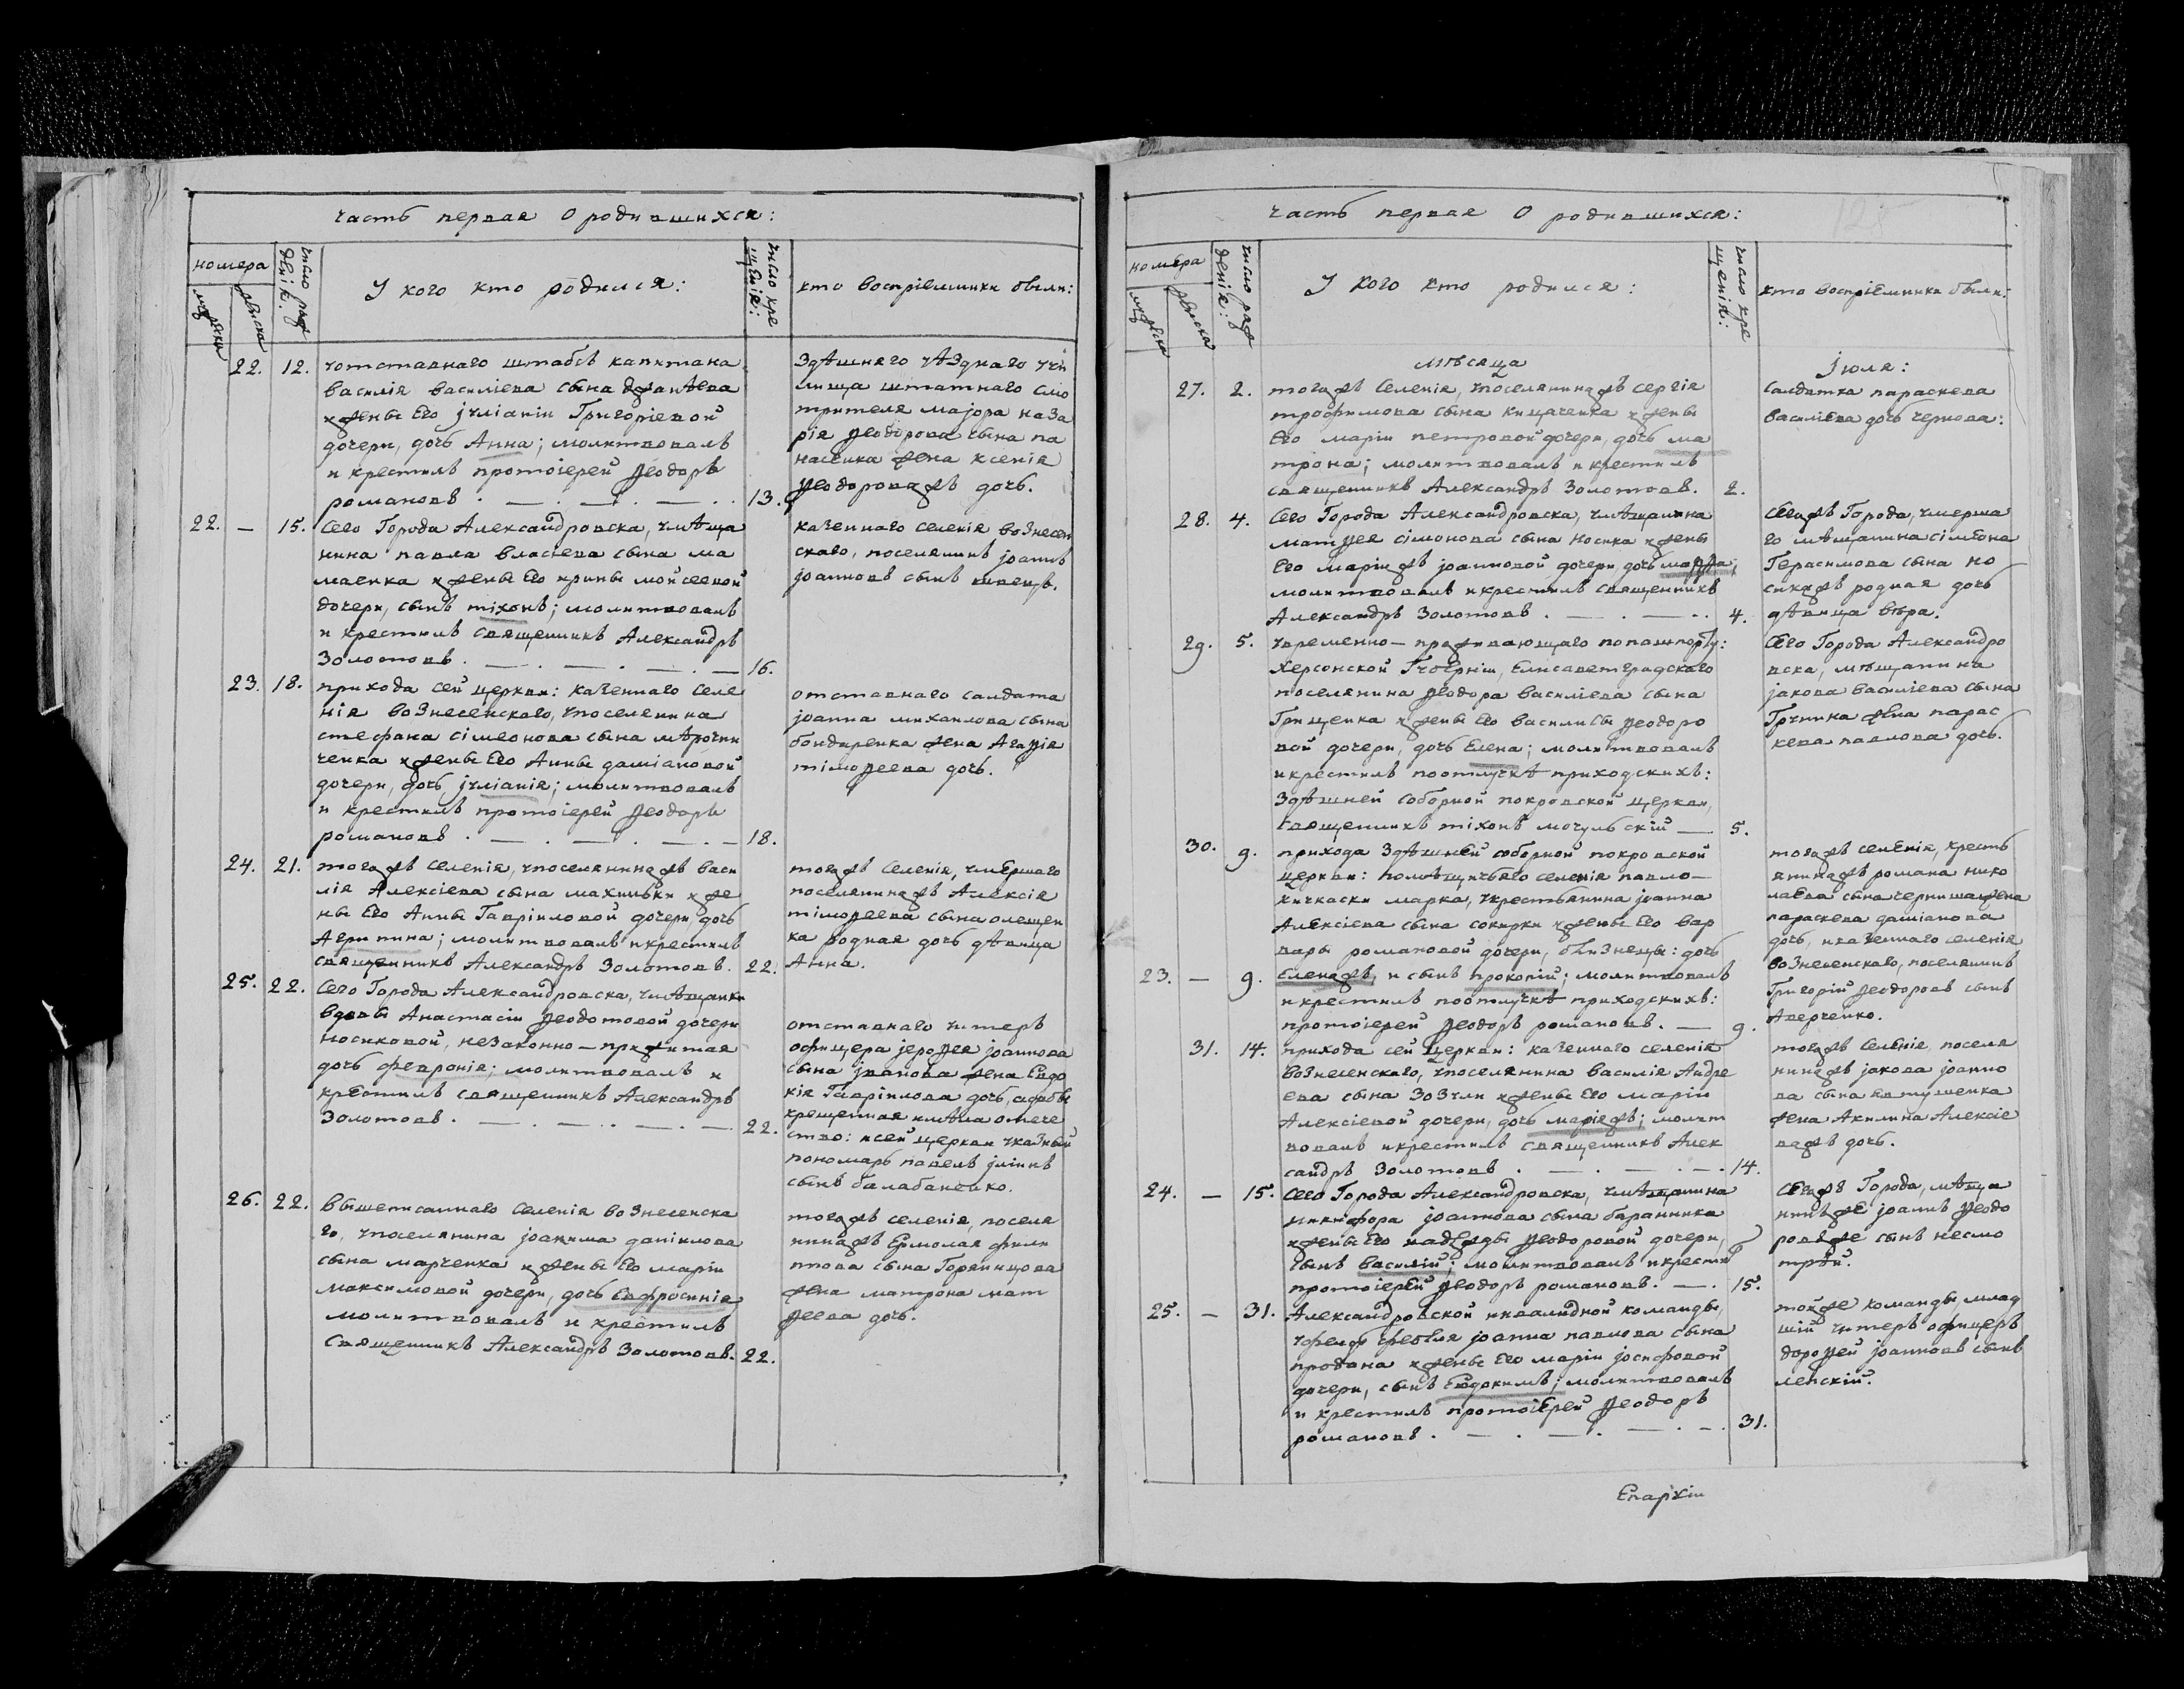 часть первая о родившихся:
номера
мужеска
женска
число рождения:
У кого кто родился:
число крещенія:
кто воспріемники были:
22. 12. у отставнаго штабсъ капитана
василія василіева сына
и жены Его іуліаніи Григоріевой
дочери, дочь Анна; молитвовалъ
и крестилъ протоіерей Ѳеодоръ
романовъ. 13.
здѣшняго уѣзднаго учи
лища штатнаго смо
трителя маіора наза
рія Ѳеодорова сына па
насенка жена ксенія
Ѳеодороважъ дочь.
22. — 15. Сего Города Александровска, умѣща
нина павла власіева сына ма
маенка и жены Его ирины мойсеевой
дочери, сынъ тіхонъ; молитвовалъ
и крестилъ священникъ Александръ
Золотовъ. 16.
казеннаго селенія вознесен
скаго, поселянинъ іоаннъ
іоанновъ сынъ швецъ.
23. 18. прихода сей церкви: казеннаго селе
нія вознесенскаго, упоселянина
стефана сімеонова сына
ченка и жены Его Анны даміановой
дочери, дочь іуліанія; молитвовалъ
и крестилъ протоіерей Ѳеодоръ
романовъ. 18.
отставнаго салдата
іоанна михаилова сына
бондаренка жена Агаѳія
тімоѳеева дочь.
24. 21. тогажъ селенія, упоселянинажъ васи
лія Алексіева сына махиньки и же
ны Его Анны Гавріиловой дочери дочь
Агрипина; молитвовалъ и крестилъ
священникъ Александръ Золотовъ. 22.
тогажъ селенія, умершаго
поселянинажъ Алексія
тімоѳеева сына олещен
ка родная дочь дѣвица
Анна.
25. 22. Сего Города Александровска, умѣщанки
вдовы Анастасіи Ѳеодотовой дочери
носиковой, незаконно—прижитая
дочь февронія; молитвовалъ и
крестилъ священникъ Александръ
Золотовъ. 22.
отставнаго унтеръ
офицера іероѳея іоаннова
сына іванова жена Евдо
кія Гавріилова дочь,
крещенная имѣла отече
ство: и сей церкви указный
пономарь павелъ іліинъ
сынъ балабаненко.
26. 22. вышеписаннаго селенія вознесенска
го, упоселянина іоакима даніилова
сына марченка и жены Его маріи
максимовой дочери, дочь Евфросинія
молитвовалъ и крестилъ
Священникъ Александръ Золотовъ. 22.
тогажъ селенія, поселя
нинажъ Ермолая фили
пова сына Горяинцова
жена матрона мат
ѳеева дочь.
часть первая О родившихся:
номера
мужеска
женска
число рождения:
У кого кто родился:
число крещенія:
кто воспріемники были:
мѣсяца
іюля:
27. 2. тогажъ селенія, упоселянинажъ сергія
трофимова сына кицаченка и жены
Его маріи петровой дочери, дочь ма
трона; молитвовалъ и крестилъ
священникъ Александръ Золотовъ. 2.
Салдатка параскева
василіева дочь чернова:
28. 4. Сего Города Александровска, умѣщанина
матѳея сімонова сына носика и жены
Его маріижъ іоанновой дочери, дочь марѳа;
молитвовалъ и крестилъ священникъ
Александръ Золотовъ. 4.
Сегожъ Города, умерша
го мѣщанина сімеона
Герасимова сына но
сикажъ родная дочь
дѣвица вѣра.
29. 5. Увременно—проживающаго по пашпорту:
Херсонской Губерніи, Елисаветградскаго
поселянина Ѳеодора василіева сына
Грищенка и жены Его василисы Ѳеодоро
вой дочери, дочь Елена; молитвовалъ
и крестилъ поотлучкѣ приходскихъ:
здѣшней соборной покровской церкви,
священникъ тіхонъ мочульскій — 5.
Сего Города Александро
вска, мѣщанина
іакова василіева сына
жена парас
кева павлова дочь.
30. 9. прихода здѣшней соборной покровской
церкви: помѣщичьяго селенія павло—
кичкаски марка, укрестьянина іоанна
Алексіева сына сокирки и жены Его вар
вары романовой дочери, близнецы: дочь
23. — 9. Еленажъ, и сынъ прокопій; молитвовалъ
и крестилъ поотлучкѣ приходскихъ:
протоіерей Ѳеодоръ романовъ. — 9.
тогажъ селенія, кресть
янинажъ романа нико
лаева сына черниша жена
параскева даміанова
дочь, и казеннаго селенія
вознесенскаго, поселянинъ
Григорій Ѳеодоровъ сынъ
Аверченко.
31. 14. прихода сей церкви: казеннаго селенія
вознесенскаго, упоселянина василія Андре
ева сына зозули и жены Его маріи
Алексіевой дочери, дочь маріяжъ; молит
вовалъ и крестилъ священникъ Алек
сандръ Золотовъ. 14.
тогажъ селенія поселя
нинажъ іакова іоанно
ва сына евтушенка
жена Акилина Алексіе
важъ дочь.
24. — 15. Сего Города Александровска, умѣщанина
никифора іоаннова сына баранника
и жены Его надежды Ѳеодоровой дочери,
сынъ василій; молитвовалъ и крестилъ
протоіерей Ѳеодоръ романовъ. — 15.
Сегожъ Города, мѣща
нинъже іоаннъ Ѳеодо
ровъже сынъ несмо
трѣй.
25. — 31. Александровской инвалидной команды,
іоанна павлова сына
продана и жены Его маріи іосифовой
дочери, сынъ Евдокимъ; молитвовалъ
и крестилъ протоіерей Ѳеодоръ
романовъ. 31.
тойже команды, млад
шій унтеръ офицеръ
дороѳей іоанновъ сынъ
ленскій.
Епархіи